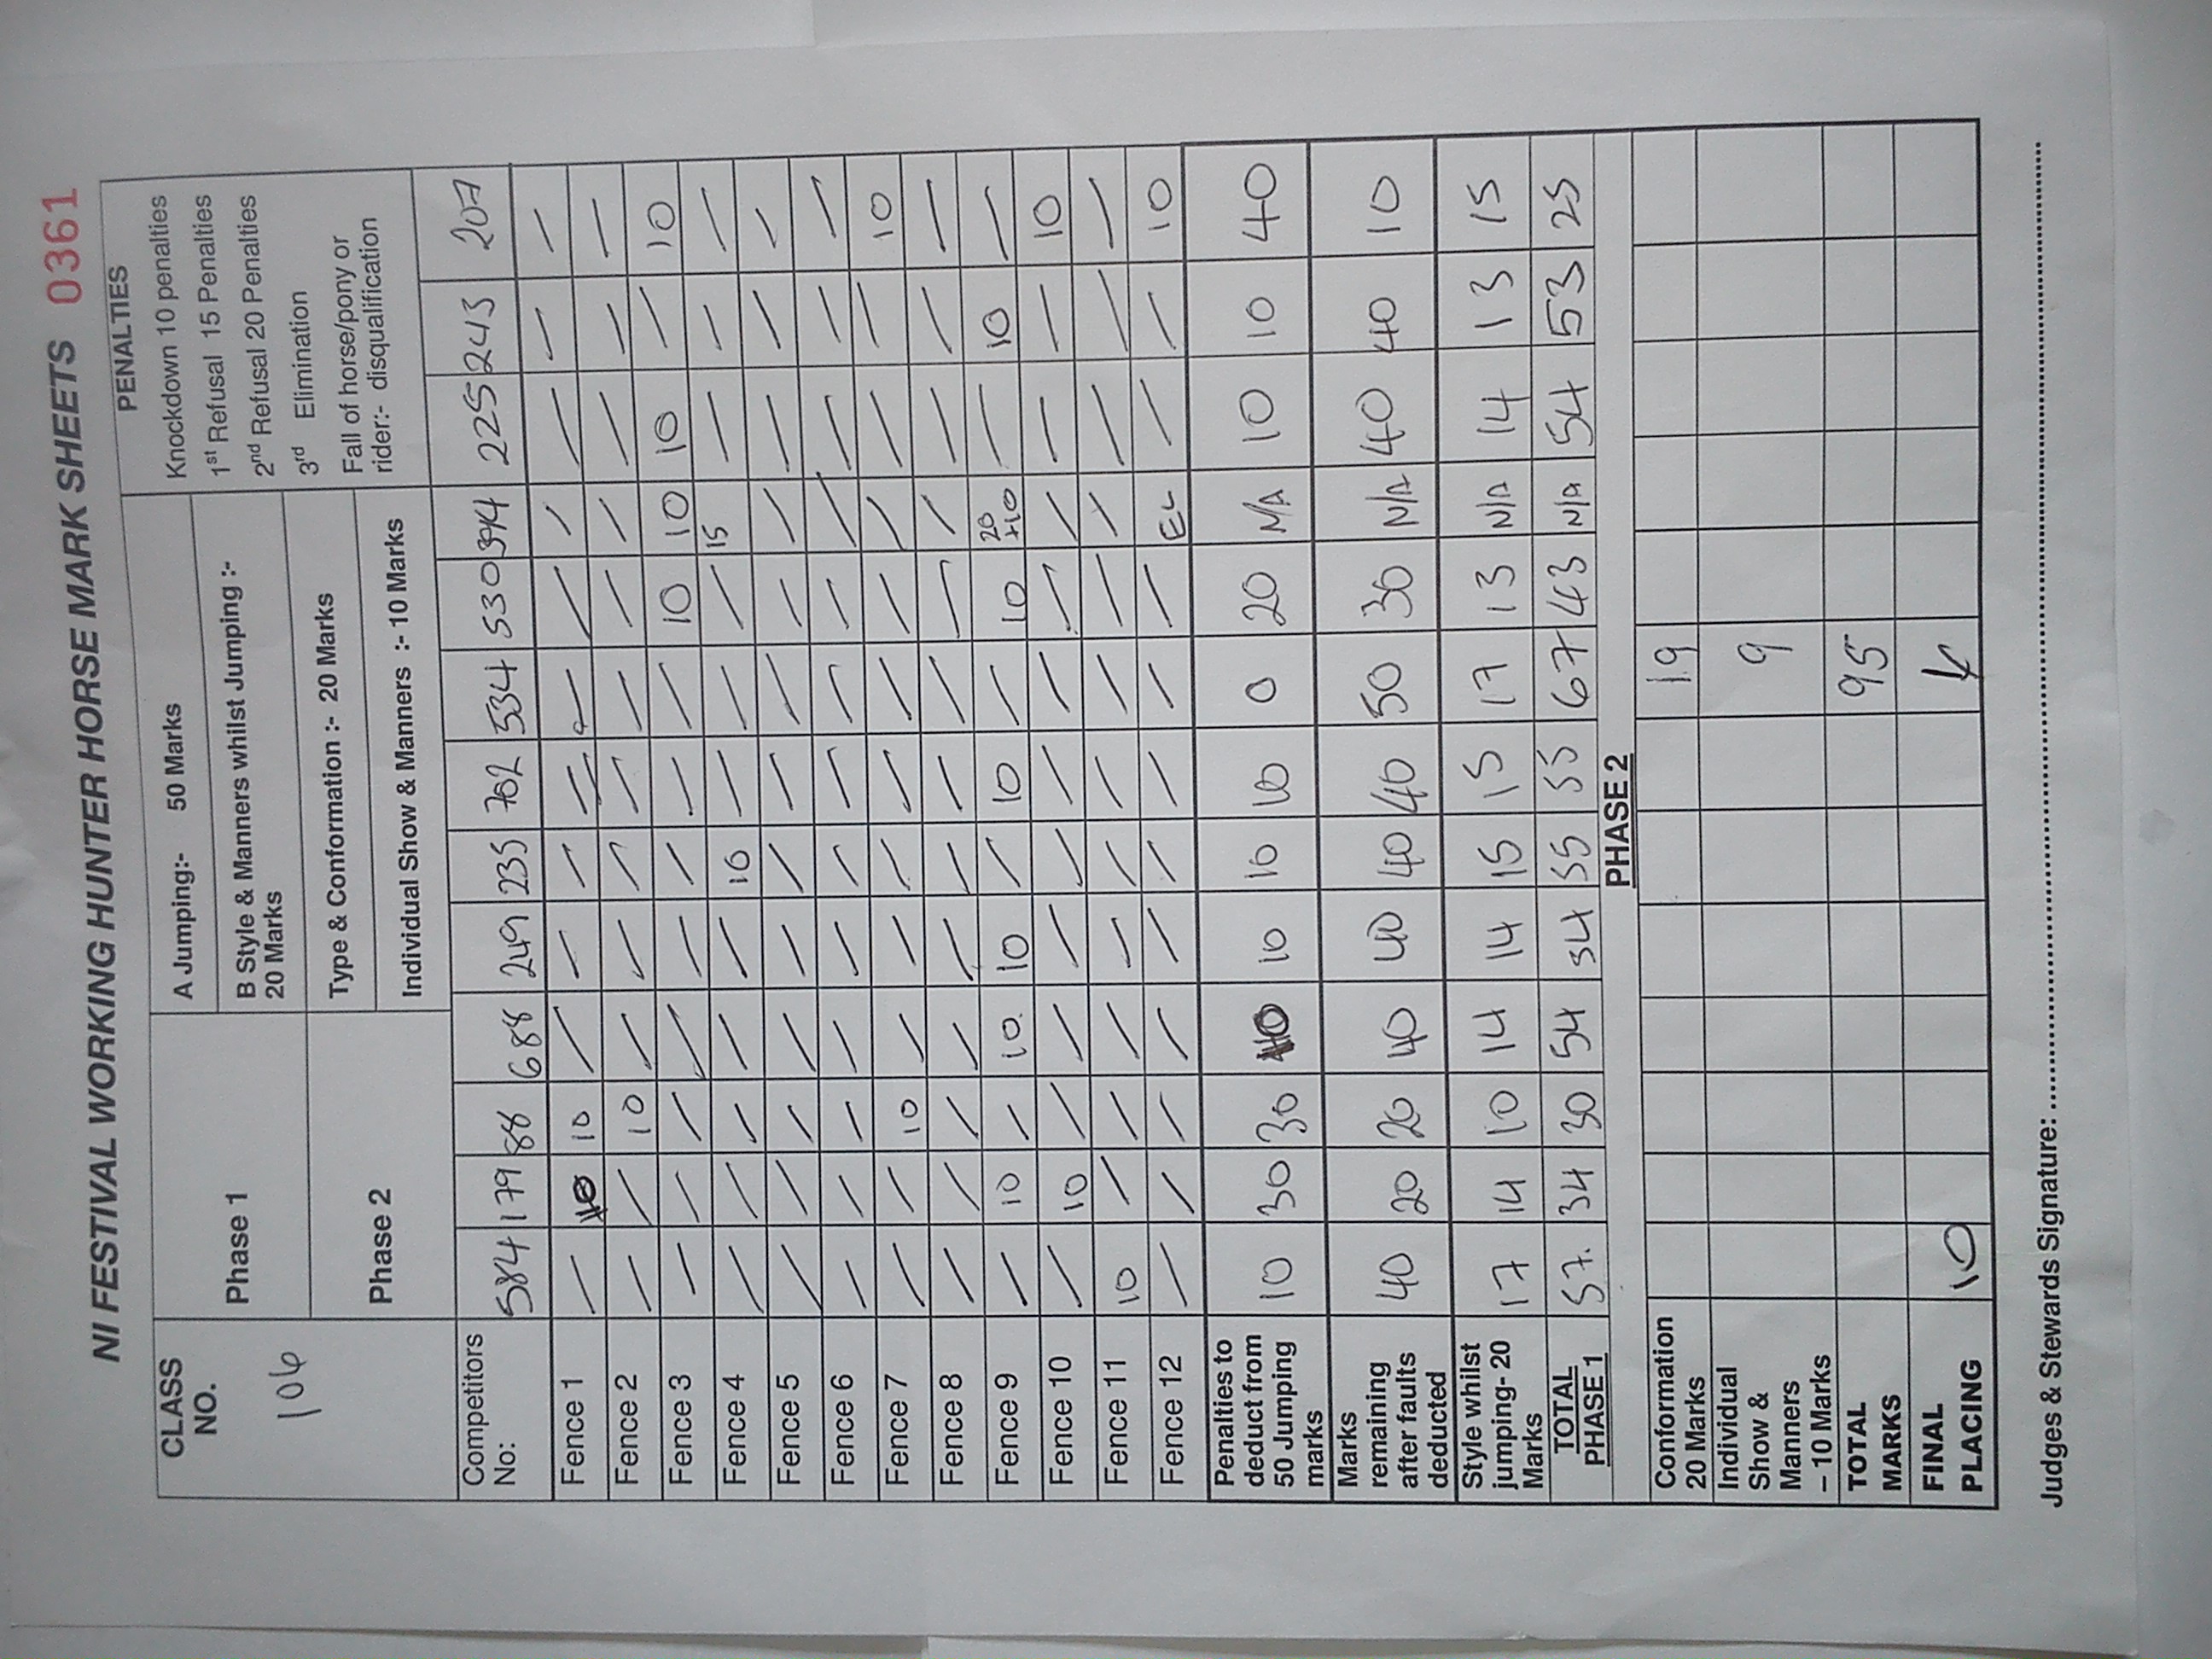 NI FESTIVAL WORKING HUNTER HORSE MARK SHEETS 0361
CLASS NO. 106
Phase 1
A Jumping:- 50 Marks
B Style & Manners whilst Jumping :-
20 Marks
Phase 2
Type & Conformation :- 20 Marks
Individual Show & Manners :- 10 Marks
PENALTIES
Knockdown 10 penalties
1st Refusal 15 Penalties
2nd Refusal 20 Penalties
3rd Elimination
Fall of horse/pony or
rider:- disqualification
Competitors No: 584 179 88 688 249 235 762 534 530 394 225 243 207
Fence 1 / 10 10 / / / / / / / / / /
Fence 2 / / 10 / / / / / / / / / /
Fence 3 / / / / / / / / 10 10 10 / 10
Fence 4 / / / / / 10 / / / 15 / / /
Fence 5 / / / / / / / / / / / / /
Fence 6 / / / / / / / / / / / / /
Fence 7 / / 10 / / / / / / / / / 10
Fence 8 / / / / / / / / / / / / /
Fence 9 / 10 / 10 10 / 10 / 10 20 +10 / 10 /
Fence 10 / 10 / / / / / / / / / / 10
Fence 11 10 / / / / / / / / / / / /
Fence 12 / / / / / / / / / EL / / 10
Penalties to deduct from 50 Jumping marks 10 30 30 10 10 10 10 0 20 N/A 10 10 40
Marks remaining after faults deducted 40 20 20 40 40 40 40 50 30 N/A 40 40 10
Style whilst jumping- 20 Marks 17 14 10 14 14 15 15 17 13 N/A 14 13 15
TOTAL PHASE 1 57. 34 30 54 54 55 55 67 43 N/A 54 53 25
PHASE 2
Conformation 20 Marks 19
Individual Show & Manners – 10 Marks 9
TOTAL MARKS 95
FINAL PLACING 10
Judges & Stewards Signature: